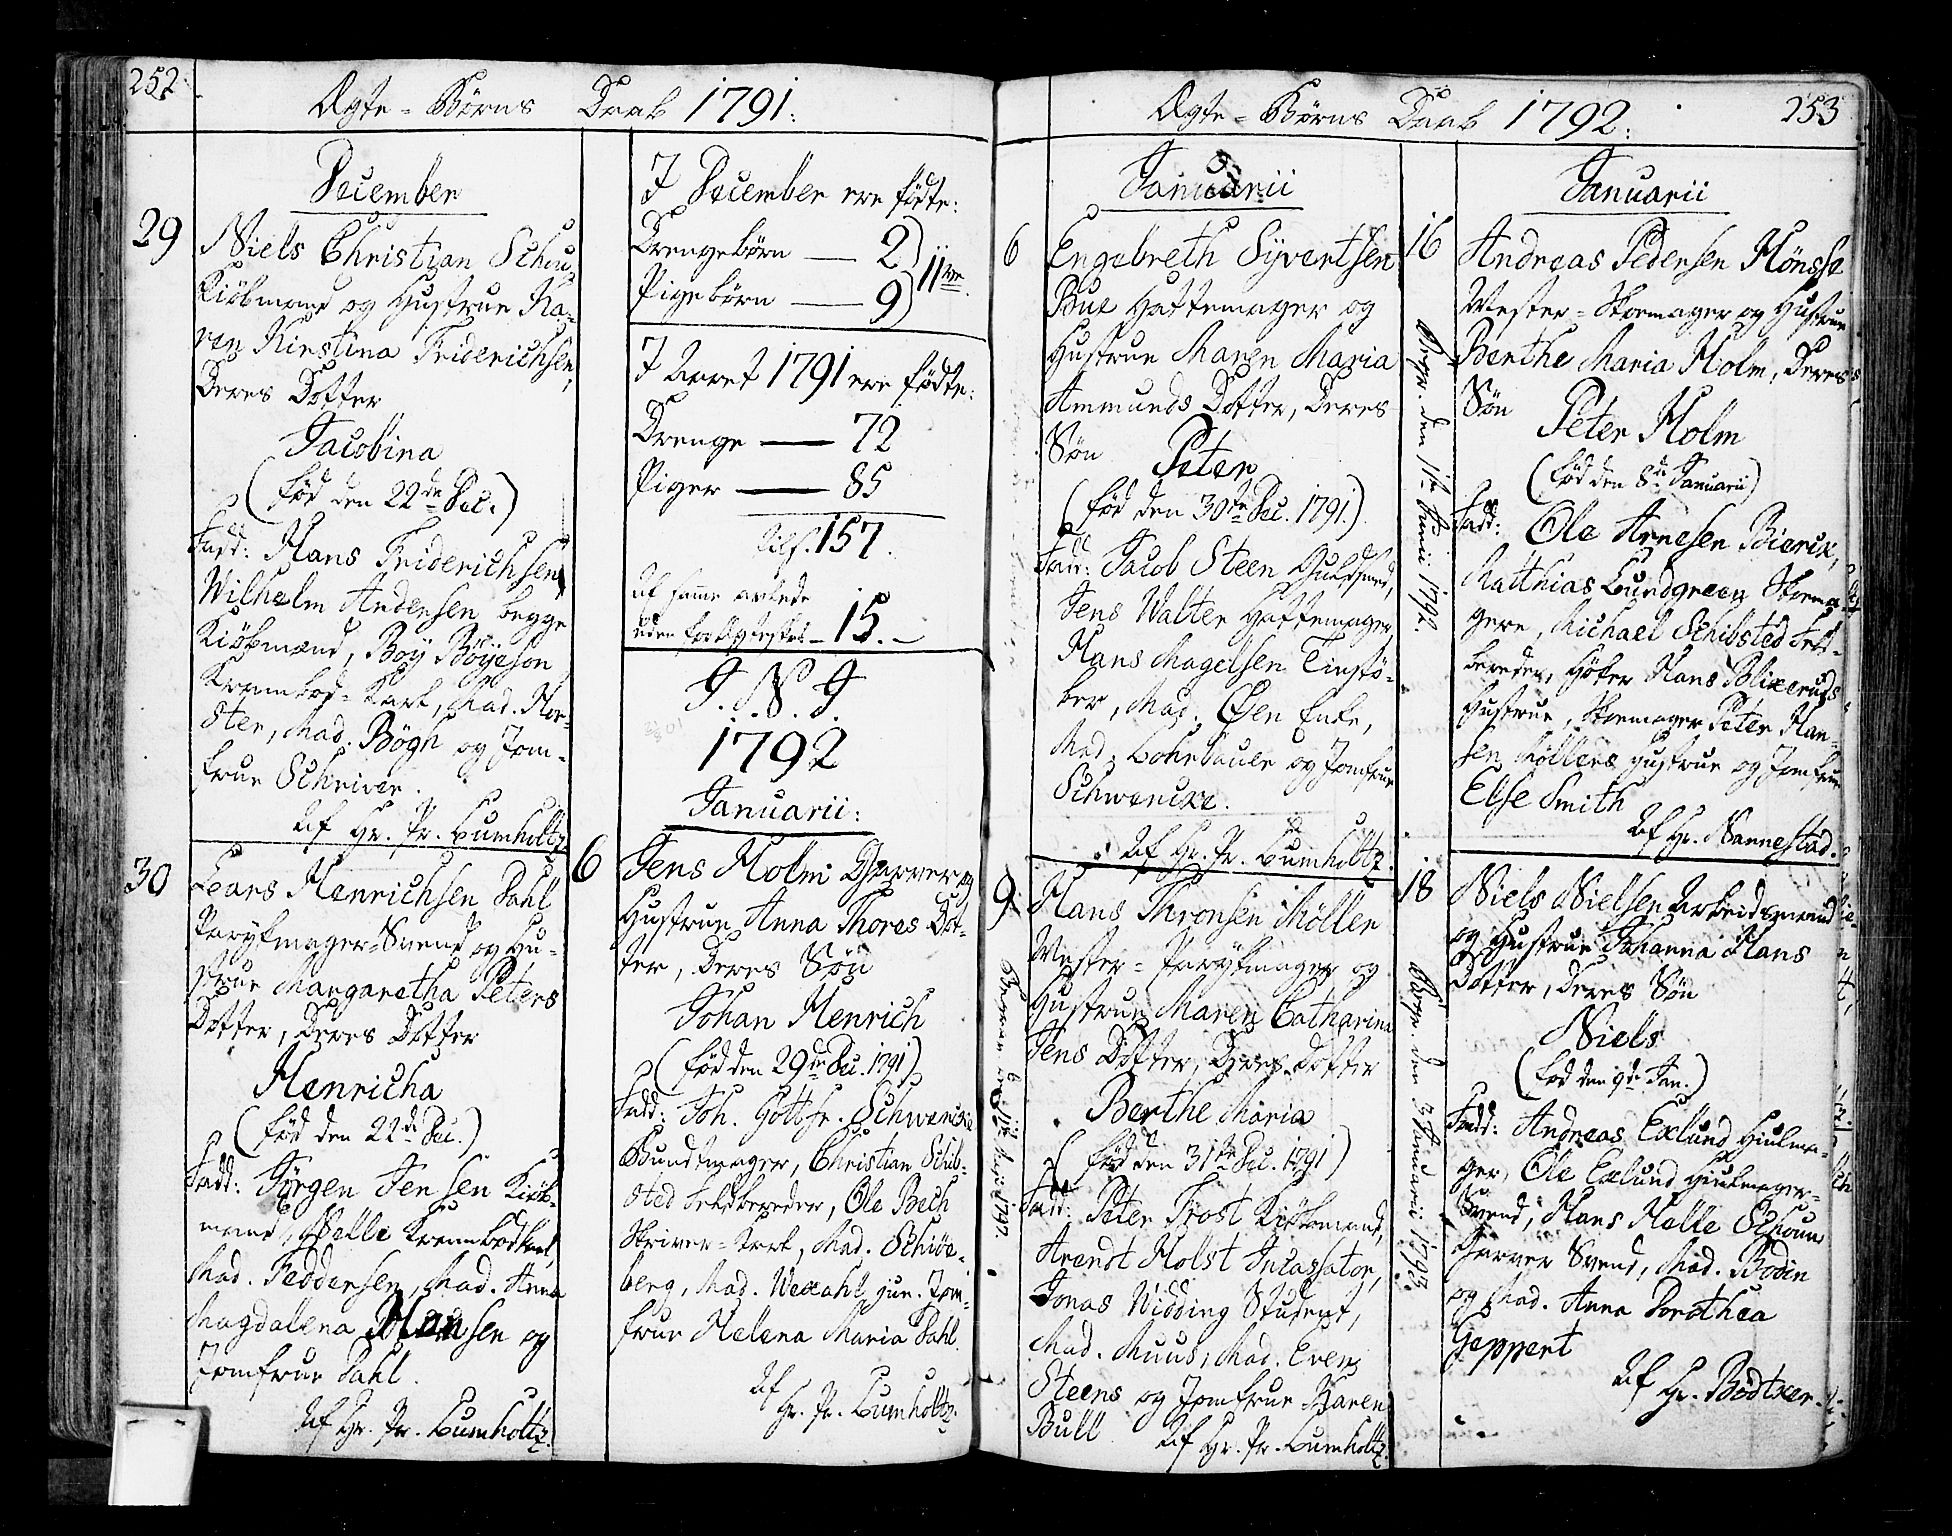 252.
Ægte-Børns Daab 1791.
December
29
Niels Christian Schu,
Kiöbmand og Hustrue Ka-
ren Kirstina Friderichsen,
Deres Dotter
Jacobina
(fød den 22de Dec.)
Fadd: Hans Friderichsen,
Wilhelm Andersen begge
Kiöbmænd, Boy Böyeson
Krambod-Karl, Mad. Hor-
ster, Mad. Bögh og Jom-
frue Schriver.
Af Hr. Pr. Lumholtz
30
Lars Henrichsen Dahl
Parykmager-Svend og Hu-
strue Margaretha Peters
Dotter, Deres Dotter
Henricha
(fød den 22de Dec.)
Fadd: Jörgen Jensen Kiöb-
mand, Welle Krambodkarl,
Mad. Feddersen, Mad. Anna
Magdalena Hansen og
Jomfrue Dahl.
Af Hr. Pr. Lumholtz.
I December ere födte:
Drengebørn — 2
Pigebørn — 9
11ve.
I Aaret 1791 ere födte:
Drenge — 72
Piger — 85
Tils. 157.
Af samme avlede
uden for Ægteskab — 15.
I. N. J.
1792
Januarii:
6
Jens Holm Garver og
Hustrue Anna Thores Dot-
ter, Deres Søn
Johan Henrich
(fød den 29de Dec. 1791)
Fadd: Joh. Gottfr. Schwencke
Bundtmager, Christian Schib-
sted Feldbereder, Ole Bech
Skriver-Karl, Mad. Schiöe-
berg, Mad. Wexahl jun. Jom-
frue Helena Maria Dahl.
Af
Hr. Pr. Lumholtz.
Ægte-Børns Daab 1792.
253
Januarii
6
Engebreth Syvertsen
Bue Hattemager og
Hustrue Maren Maria
Ammunds Dotter, Deres
Søn
Peter
(fød den 30te Dec. 1791.)
Fadd: Jacob Steen Guldsmed,
Jens Walter Hattemager,
Hans Magelsen Tinstö-
ber, Mad. Öen Enke,
Mad. Bohrsaule og Jomfrue
Schwencke.
Af Hr. Pr. Lumholtz.
9.
Hans Thronsen Möller
Mester-Parykmager og
Hustrue Maren Catharina
Jens Dotter, Deres Dotter
Berthe Maria
(fød den 31te Dec. 1791)
Fadd: Peter Frost Kiöbmand,
Arendt Holst Incassator,
Jonas Widding Student,
Mad. Muus, Mad. Even
Steens og Jomfrue Karen
Bull
Af Hr. Pr. Lumholtz.
Januarii
16
Andreas Pedersen Hönsse
Mester-Skomager og Hustrue
Berthe Maria Holm, Deres
Søn
Peter Holm
(fød den 8de Januarii)
Fadd: Ole Arnesen Bierck,
Matthias Lundgreen Skoma-
gere, Michael Schibsted Feld-
bereder, Höker Hans Blixeruds
Hustrue, Skomager Peter Han-
sen Möllers Hustrue og Jomfrue
Else Smith
Af Hr. Nannestad.
Begr. den 11te Junii 1792.
18
Niels Nielsen Arbeidsmand
og Hustrue Johanna Hans
Dotter, Deres Søn
Niels
(fød den 9de Jan.)
Fadd: Andreas Exlund Hiulma-
ger, Ole Exlund Hiulmager-
Svend, Hans Helle Schoun
Garver Svend, Mad. Bodin
og Mad. Anna Dorothea
Geppert
Af Hr. Bödtker.
Begr. den 3 Januarii 1793.